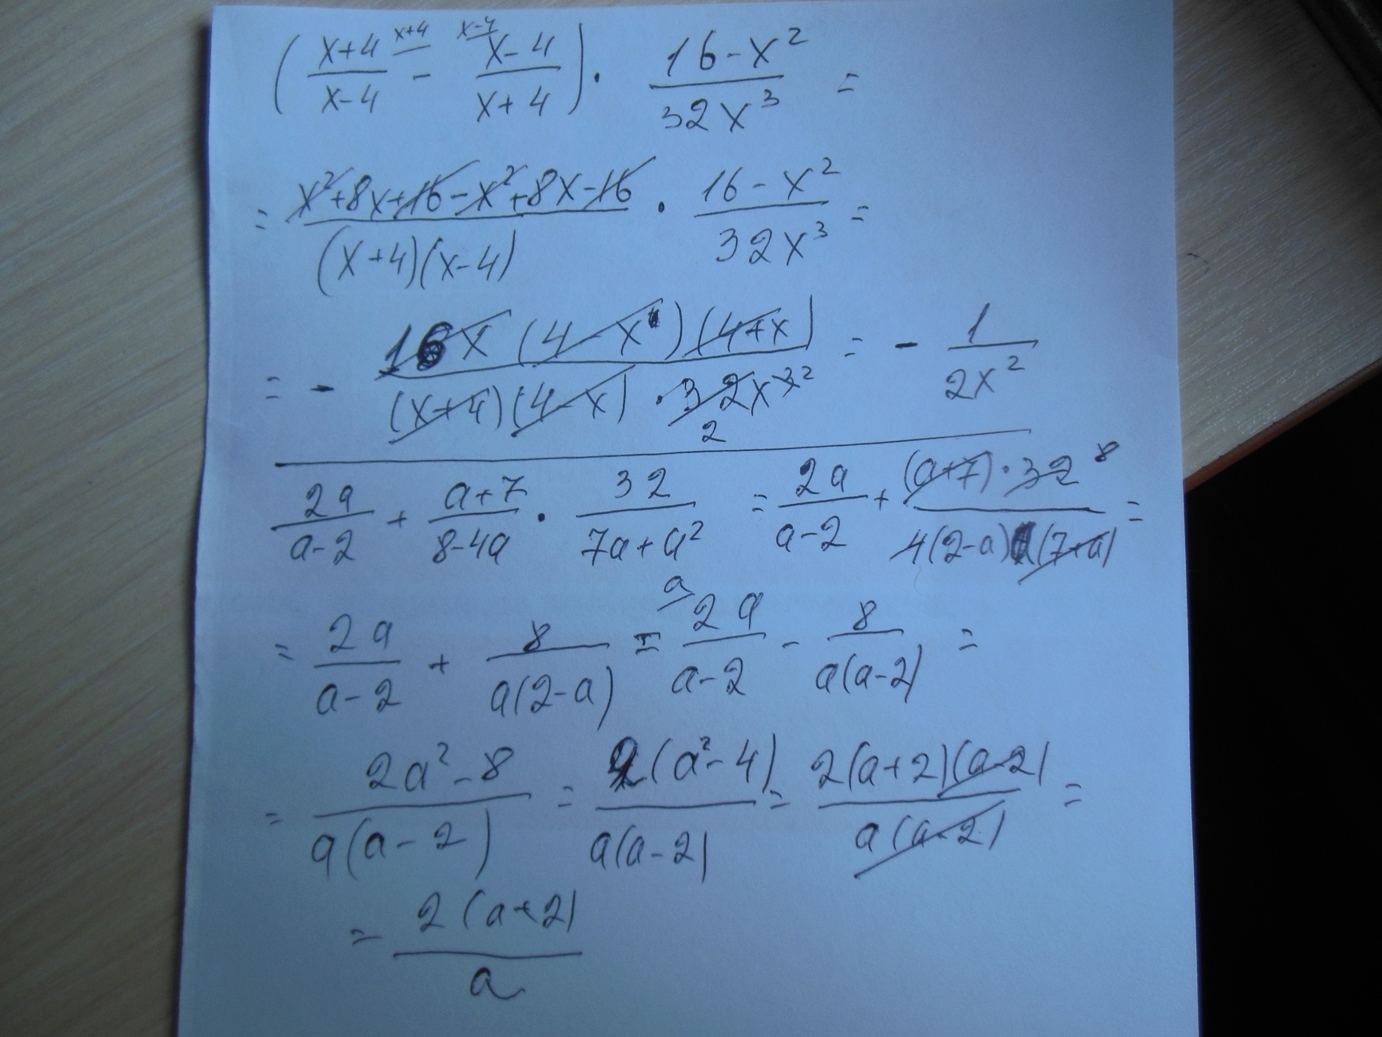 ( (x+4)/(x-4) ^{x+4} - ^{x-4} (x-4)/(x+4) ) · (16-x²)/(32x³) =
= (x²+8x+16-x²+8x-16)/((x+4)(x-4)) · (16-x²)/(32x³) =
= - (16x(4-x)(4+x))/((x+4)(4-x)·32x³) = - 1/(2x²)
2a/(a-2) + (a+7)/(8-4a) · 32/(7a+a²) = 2a/(a-2) + ((a+7)·32)/(4(2-a)a(7+a)) =
= 2a/(a-2) + 8/(a(2-a)) = ^{a} 2a/(a-2) - 8/(a(a-2)) =
= (2a²-8)/(a(a-2)) = (2(a²-4))/(a(a-2)) = (2(a+2)(a-2))/(a(a-2)) =
= (2(a+2))/a